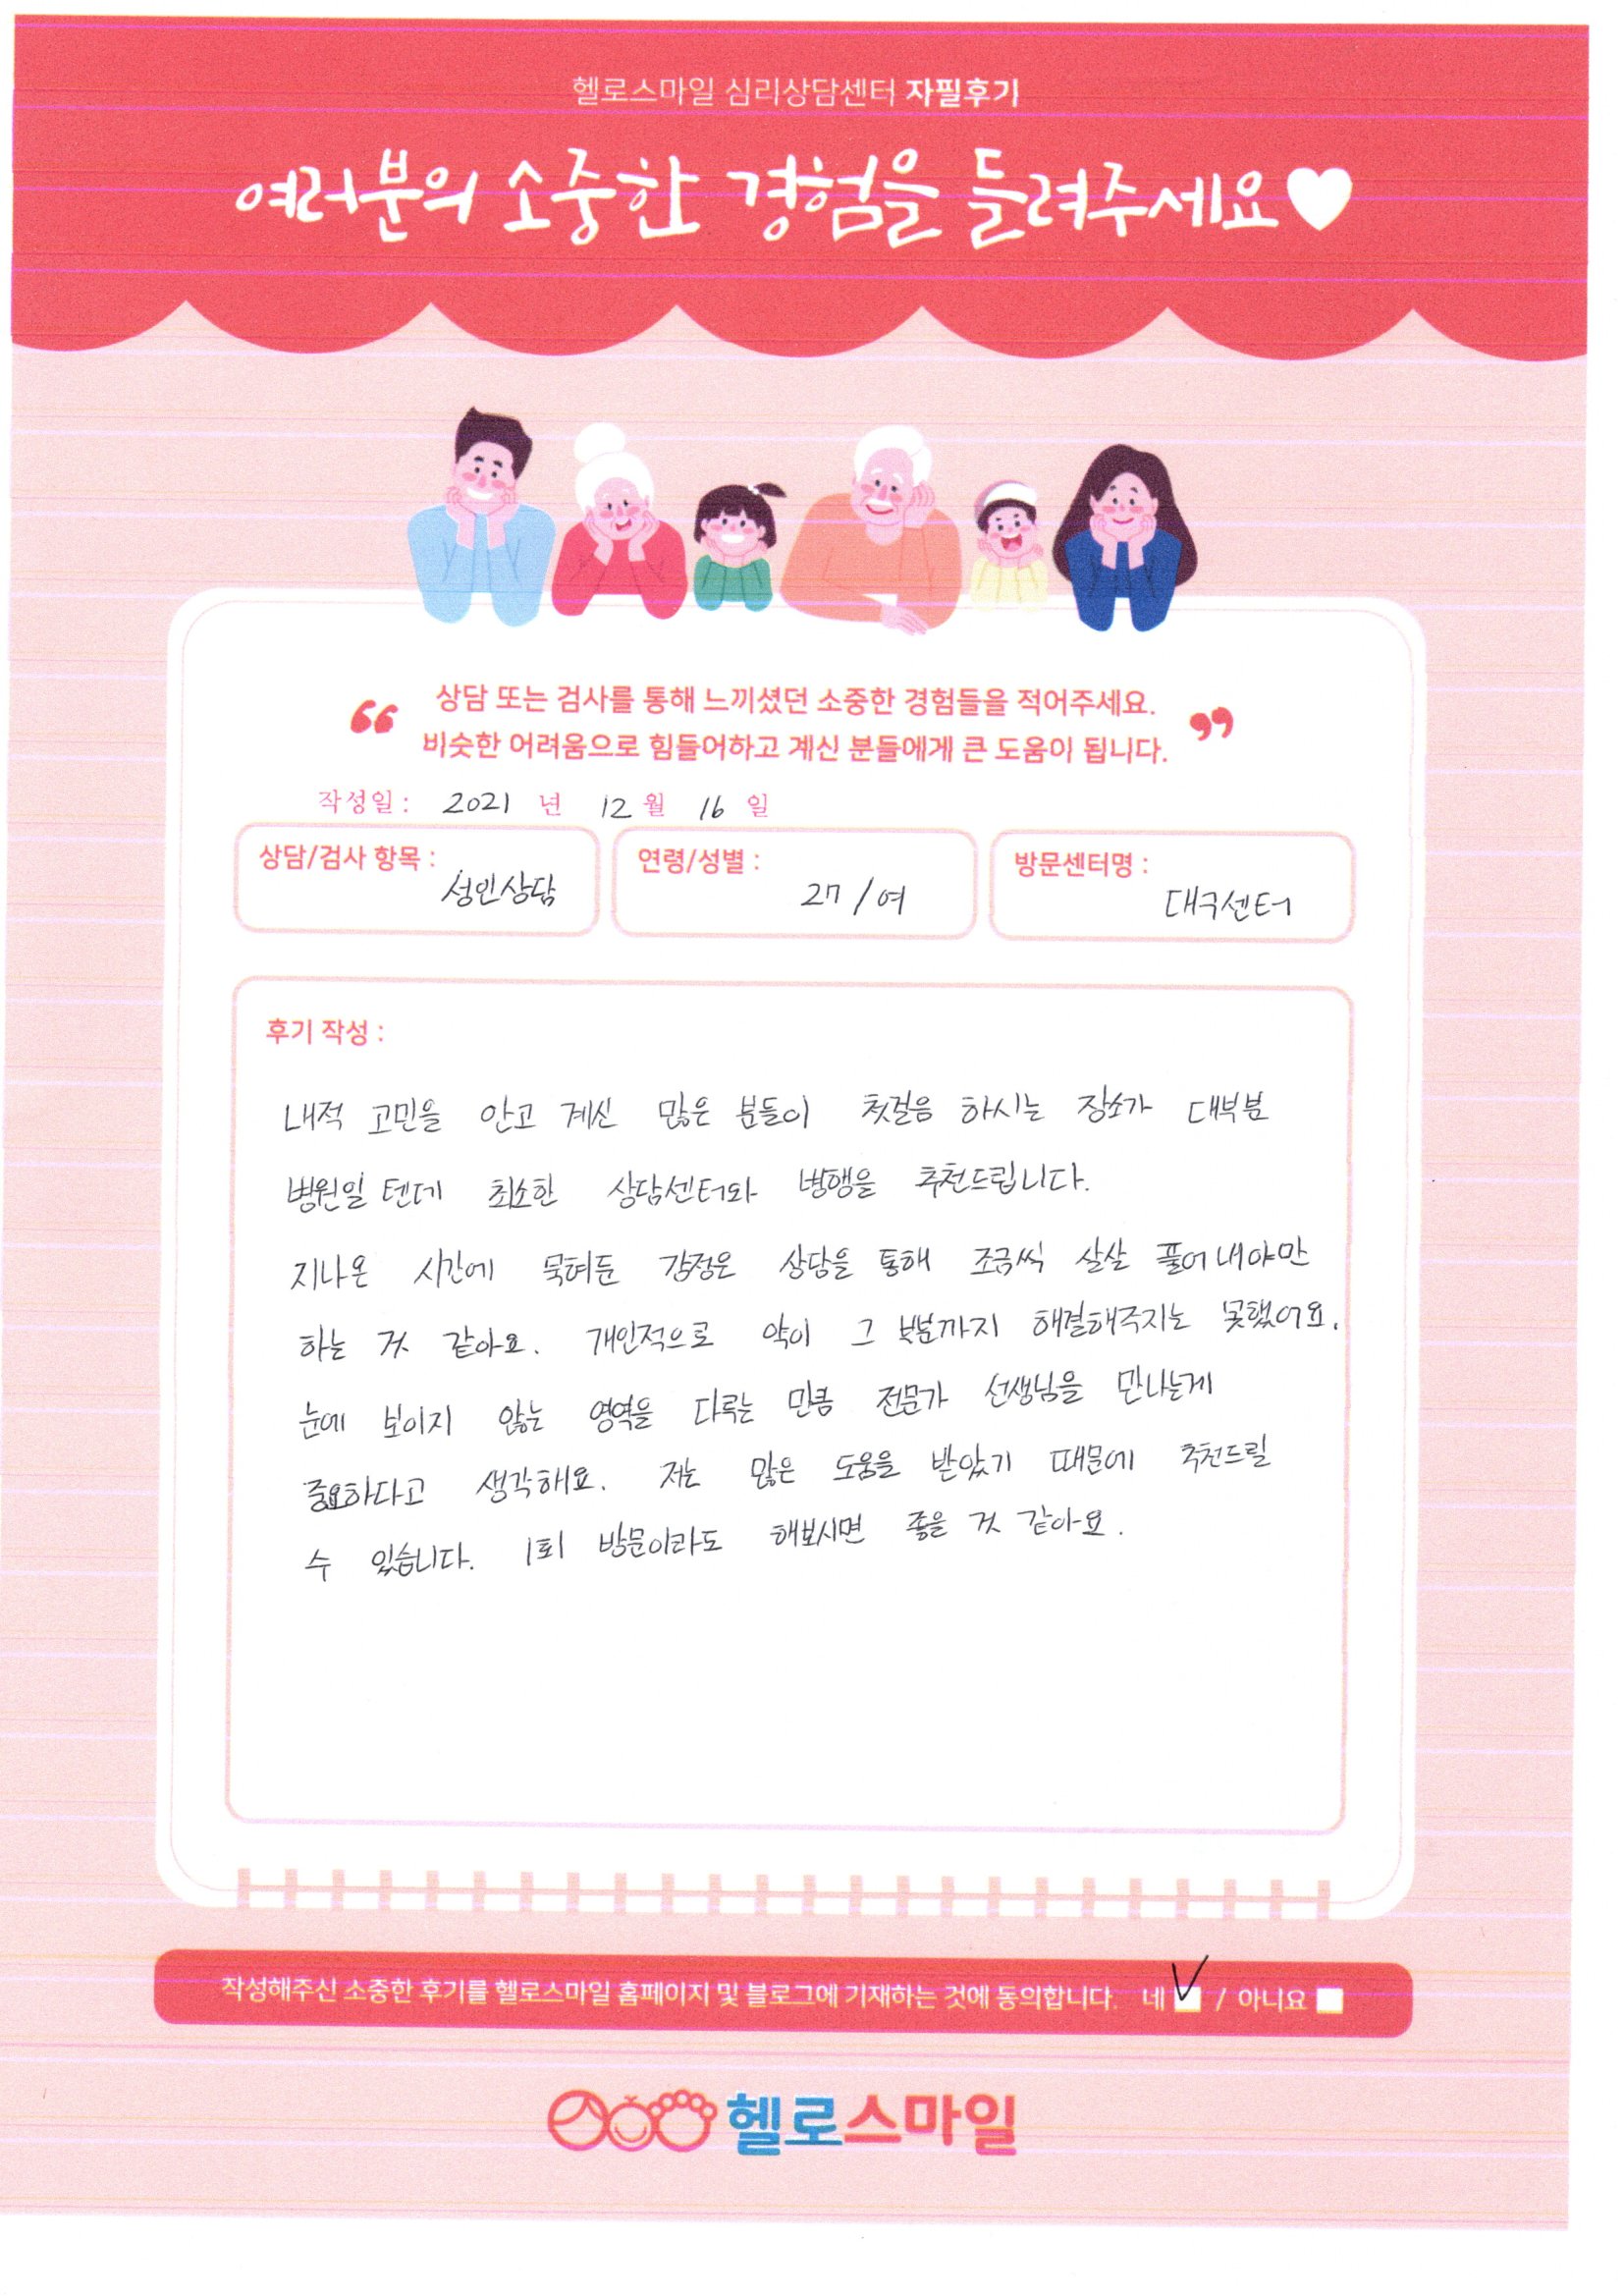 헬로스마일 심리상담센터 자필후기
여러분의 소중한 경험을 들려주세요
상담 또는 검사를 통해 느끼셨던 소중한 경험들을 적어주세요.
비슷한 어려움으로 힘들어하고 계신 분들에게 큰 도움이 됩니다.
작성일 : 2021 년 12 월 16 일
상담/검사 항목 : 성인상담
연령/성별 : 27 / 여
방문센터명 : 대구센터
후기 작성 :
내적 고민을 안고 계신 많은 분들이 첫걸음 하시는 장소가 대부분
병원일 텐데 최소한 상담센터와 병행을 추천드립니다.
지나온 시간에 묵혀둔 감정은 상담을 통해 조금씩 살살 풀어내야만
하는 것 같아요. 개인적으로 약이 그 부분까지 해결해주지는 못했어요.
눈에 보이지 않는 영역을 다루는 만큼 전문가 선생님을 만나는게
중요하다고 생각해요. 저는 많은 도움을 받았기 때문에 추천드릴
수 있습니다. 1회 방문이라도 해보시면 좋을 것 같아요.
작성해주신 소중한 후기를 헬로스마일 홈페이지 및 블로그에 기재하는 것에 동의합니다. 네 / 아니요
헬로스마일